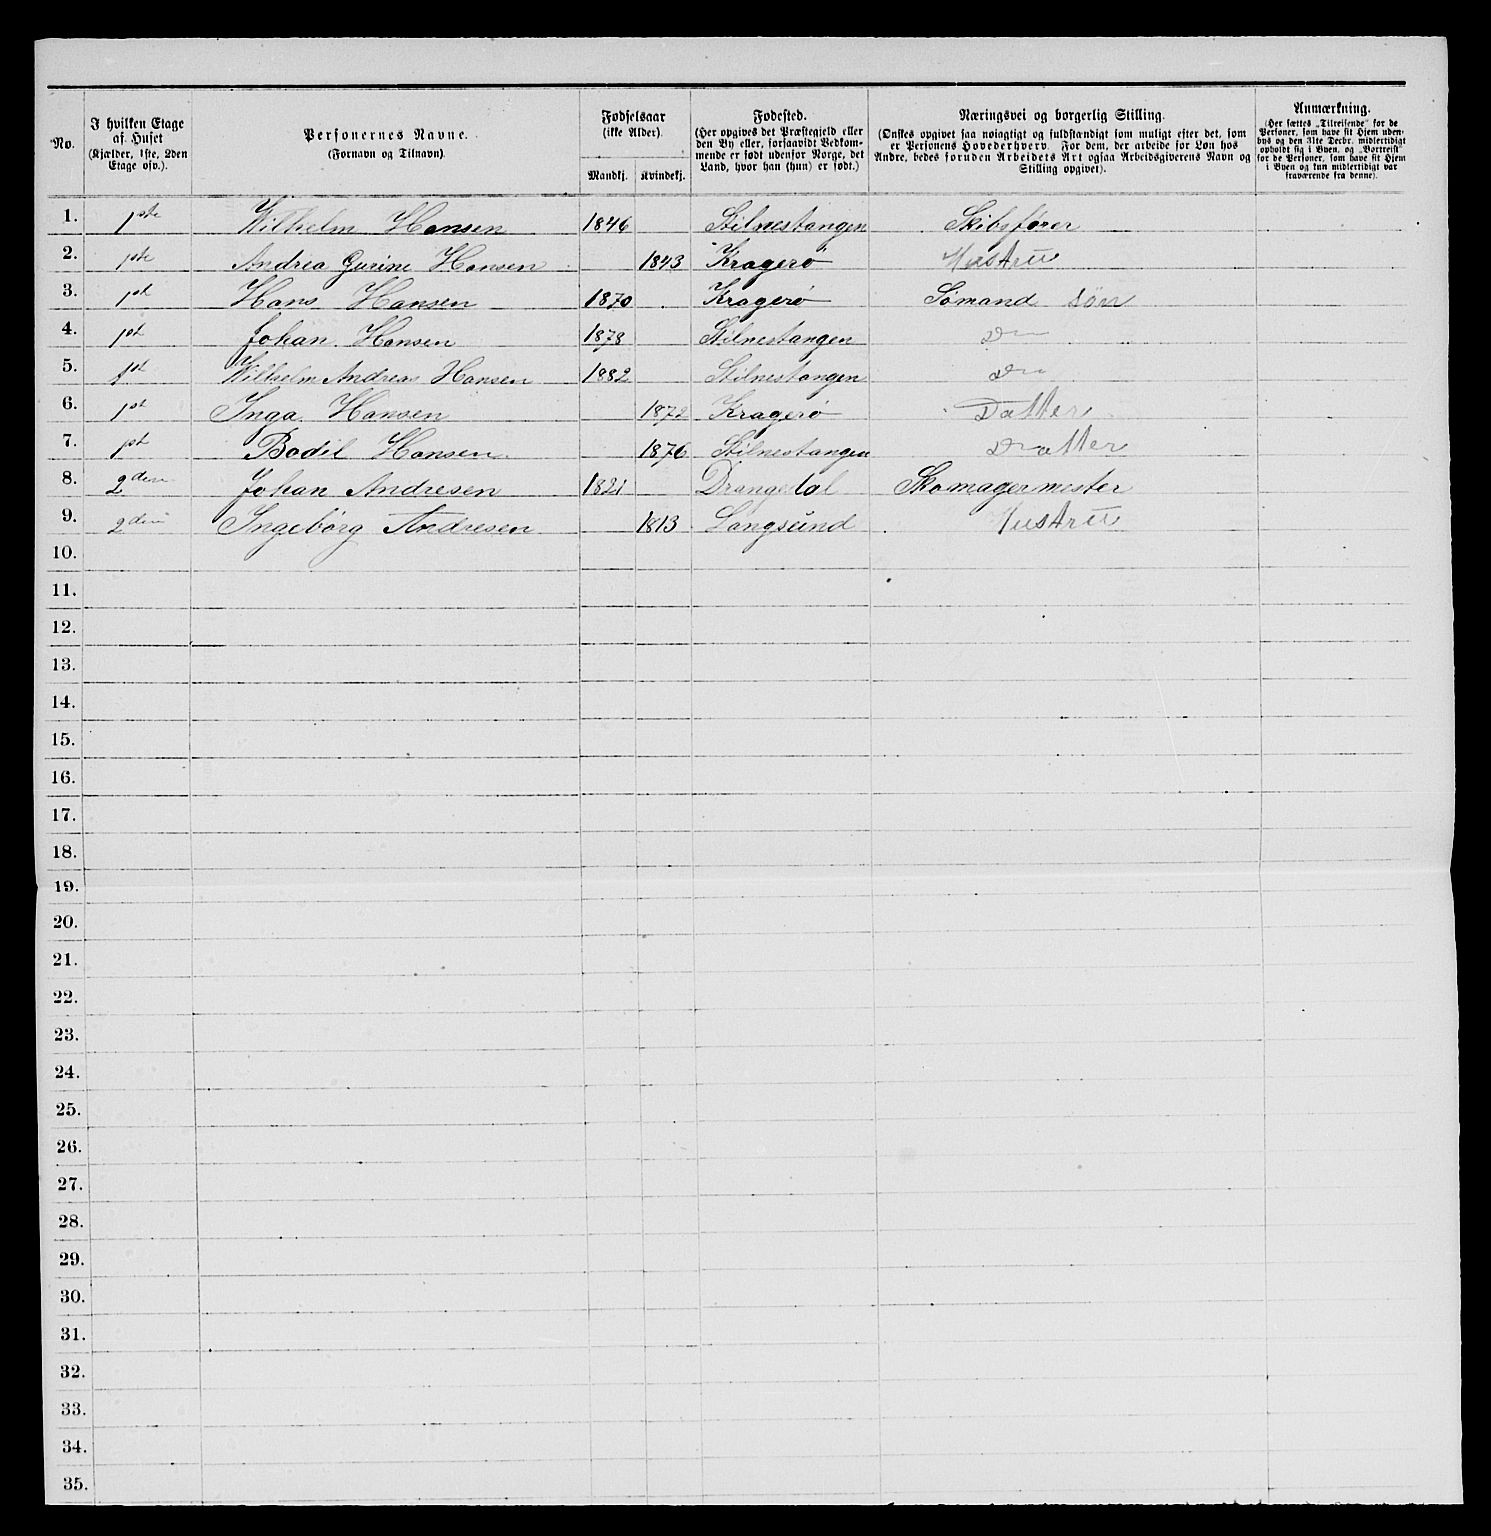 No.
I hvilken Etage af Huset (Kjælder, 1ste, 2den Etage osv.).
Personernes Navne. (Fornavn og Tilnavn).
Fødselsaar (ikke Alder). Mandkj. Kvindekj.
Fødested. (Her opgives det Præstegjeld eller den By eller, forsaavidt Vedkommende er født udenfor Norge, det Land, hvor han (hun) er født.)
Næringsvei og borgerlig Stilling. (Ønskes opgivet saa nøiagtigt og fuldstændigt som muligt efter det, som er Personens Hovederhverv. For dem, der arbeide for Løn hos Andre, bedes foruden Arbeidets Art ogsaa Arbeidsgiverens Navn og Stilling opgivet).
Anmærkning. (Her sættes „Tilreisende" for de Personer, som have sit Hjem udenbys og den 31te Decbr. midlertidigt opholdt sig i Byen, og „Bortreist" for de Personer, som have sit Hjem i Byen og kun midlertidigt var fraværende fra denne).
1. 1ste Wilhelm Hansen 1846 Stilnestangen Skibsfører
2. 1ste Andrea Gurine Hansen 1843 Kragerø Hustru
3. 1st Hans Hansen 1870 Kragerø Sømand Søn
4. 1st Johan Hansen 1878 Stilnestangen Do
5. 1st Wilhelm Andreas Hansen 1882 Stilnestangen Do
6. 1st Inga Hansen 1872 Kragerø Datter
7. 1st Bodil Hansen 1876 Stilnestangen Datter
8. 2den Johan Andresen 1821 Drangedal Skomagermester
9. 2den Ingebørg Andresen 1813 Langsund Hustru
10.
11.
12.
13.
14.
15.
16.
17.
18.
19.
20.
21.
22.
23.
24.
25.
26.
27.
28.
29.
30.
31.
32.
33.
34.
35.